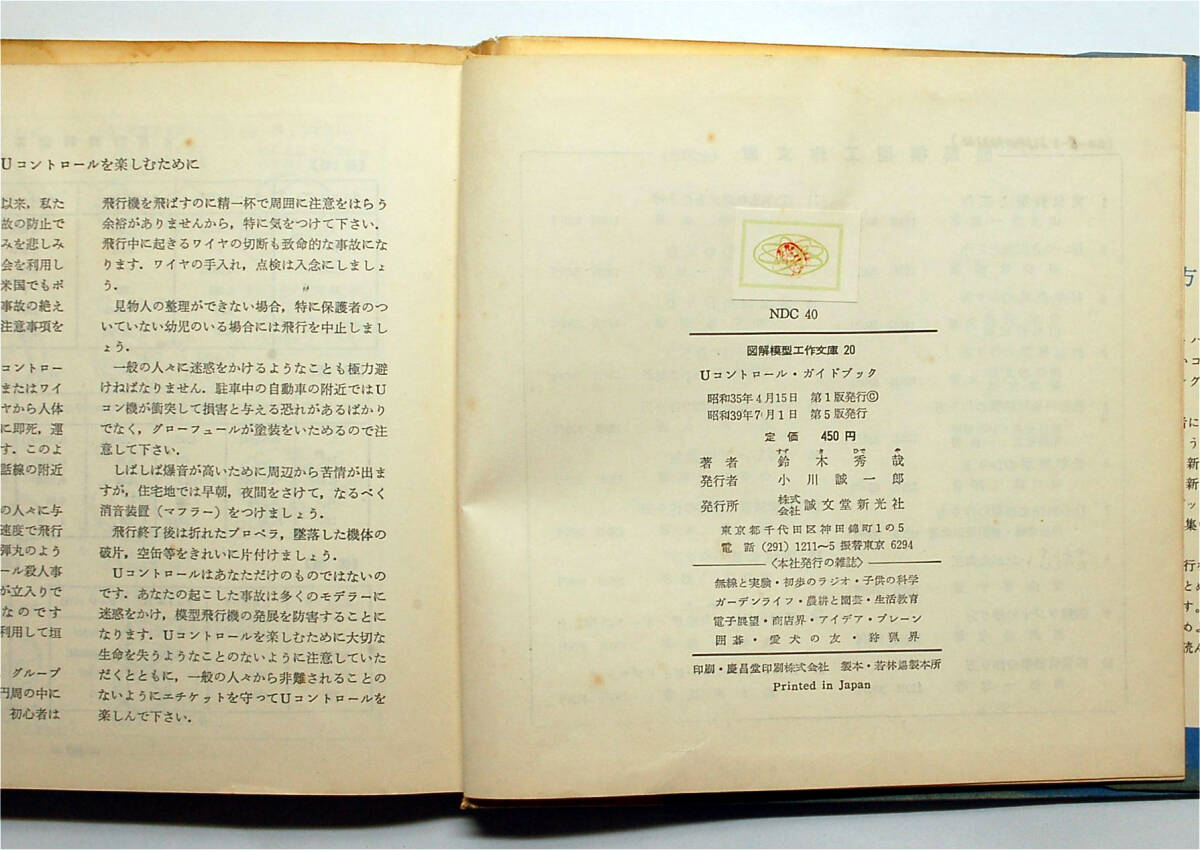 Uコントロールを楽しむために
以来，私た
故の防止で
みを悲しみ
会を利用し
米国でもポ
事故の絶え
注意事項を
コントロー
またはワイ
ヤから人体
に即死，運
す．このよ
話線の附近
の人々に与
速度で飛行
弾丸のよう
ール殺人事
が立入りで
なのです
利用して垣
グループ
円周の中に
初心者は
飛行機を飛ばすのに精一杯で周囲に注意をはらう
余裕がありませんから，特に気をつけて下さい．
飛行中に起きるワイヤの切断も致命的な事故にな
ります．ワイヤの手入れ，点検は入念にしましょ
う．
見物人の整理ができない場合，特に保護者のつ
いていない幼児のいる場合には飛行を中止しまし
ょう．
一般の人々に迷惑をかけるようなことも極力避
けねばなりません．駐車中の自動車の附近ではU
コン機が衝突して損害と与える恐れがあるばかり
でなく，グローフュールが塗装をいためるので注
意して下さい．
しばしば爆音が高いために周辺から苦情が出ま
すが，住宅地では早朝，夜間をさけて，なるべく
消音装置（マフラー）をつけましょう．
飛行終了後は折れたプロペラ，墜落した機体の
破片，空缶等をきれいに片付けましょう．
Uコントロールはあなただけのものではないの
です．あなたの起こした事故は多くのモデラーに
迷惑をかけ，模型飛行機の発展を防害することに
なります．Uコントロールを楽しむために大切な
生命を失うようなことのないように注意していた
だくとともに，一般の人々から非難されることの
ないようにエチケットを守ってUコントロールを
楽しんで下さい．
NDC 40
図解模型工作文庫 20
Uコントロール・ガイドブック
昭和35年4月15日 第1版発行©
昭和39年7月1日 第5版発行
定価 450円
著者 鈴木秀哉
すずきひでや
発行者 小川誠一郎
発行所 株式会社 誠文堂新光社
東京都千代田区神田錦町1の5
電話 (291) 1211～5 振替東京 6294
〈本社発行の雑誌〉
無線と実験・初歩のラジオ・子供の科学
ガーデンライフ・農耕と園芸・生活教育
電子展望・商店界・アイデア・ブレーン
囲碁・愛犬の友・狩猟界
印刷・慶昌堂印刷株式会社 製本・若林製本所
Printed in Japan